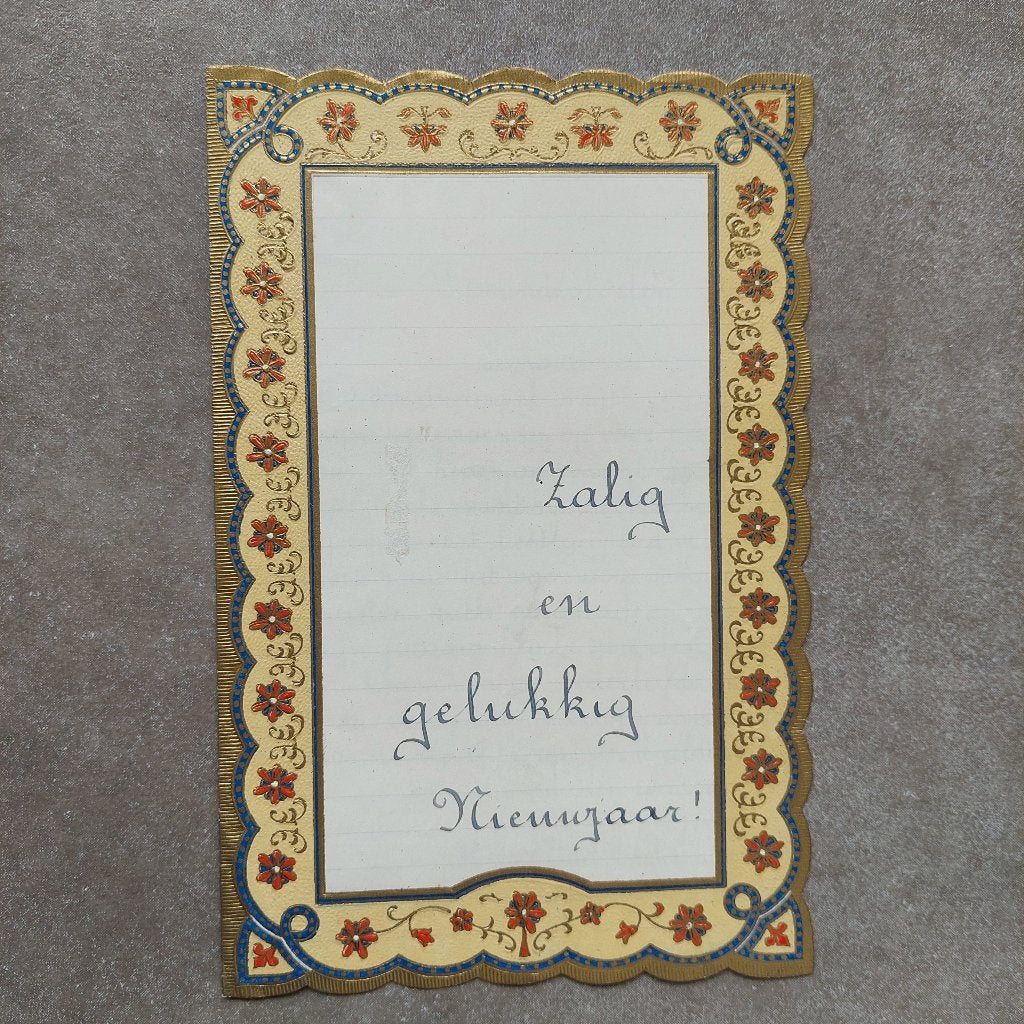 Zalig
en
gelukkig
Nieuwjaar!